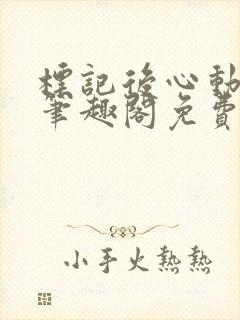 標記後心動
筆趣閣免費
小手火熱熱